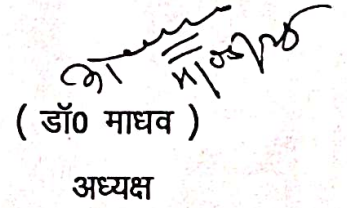 ( डॉ0 माधव )
अध्यक्ष